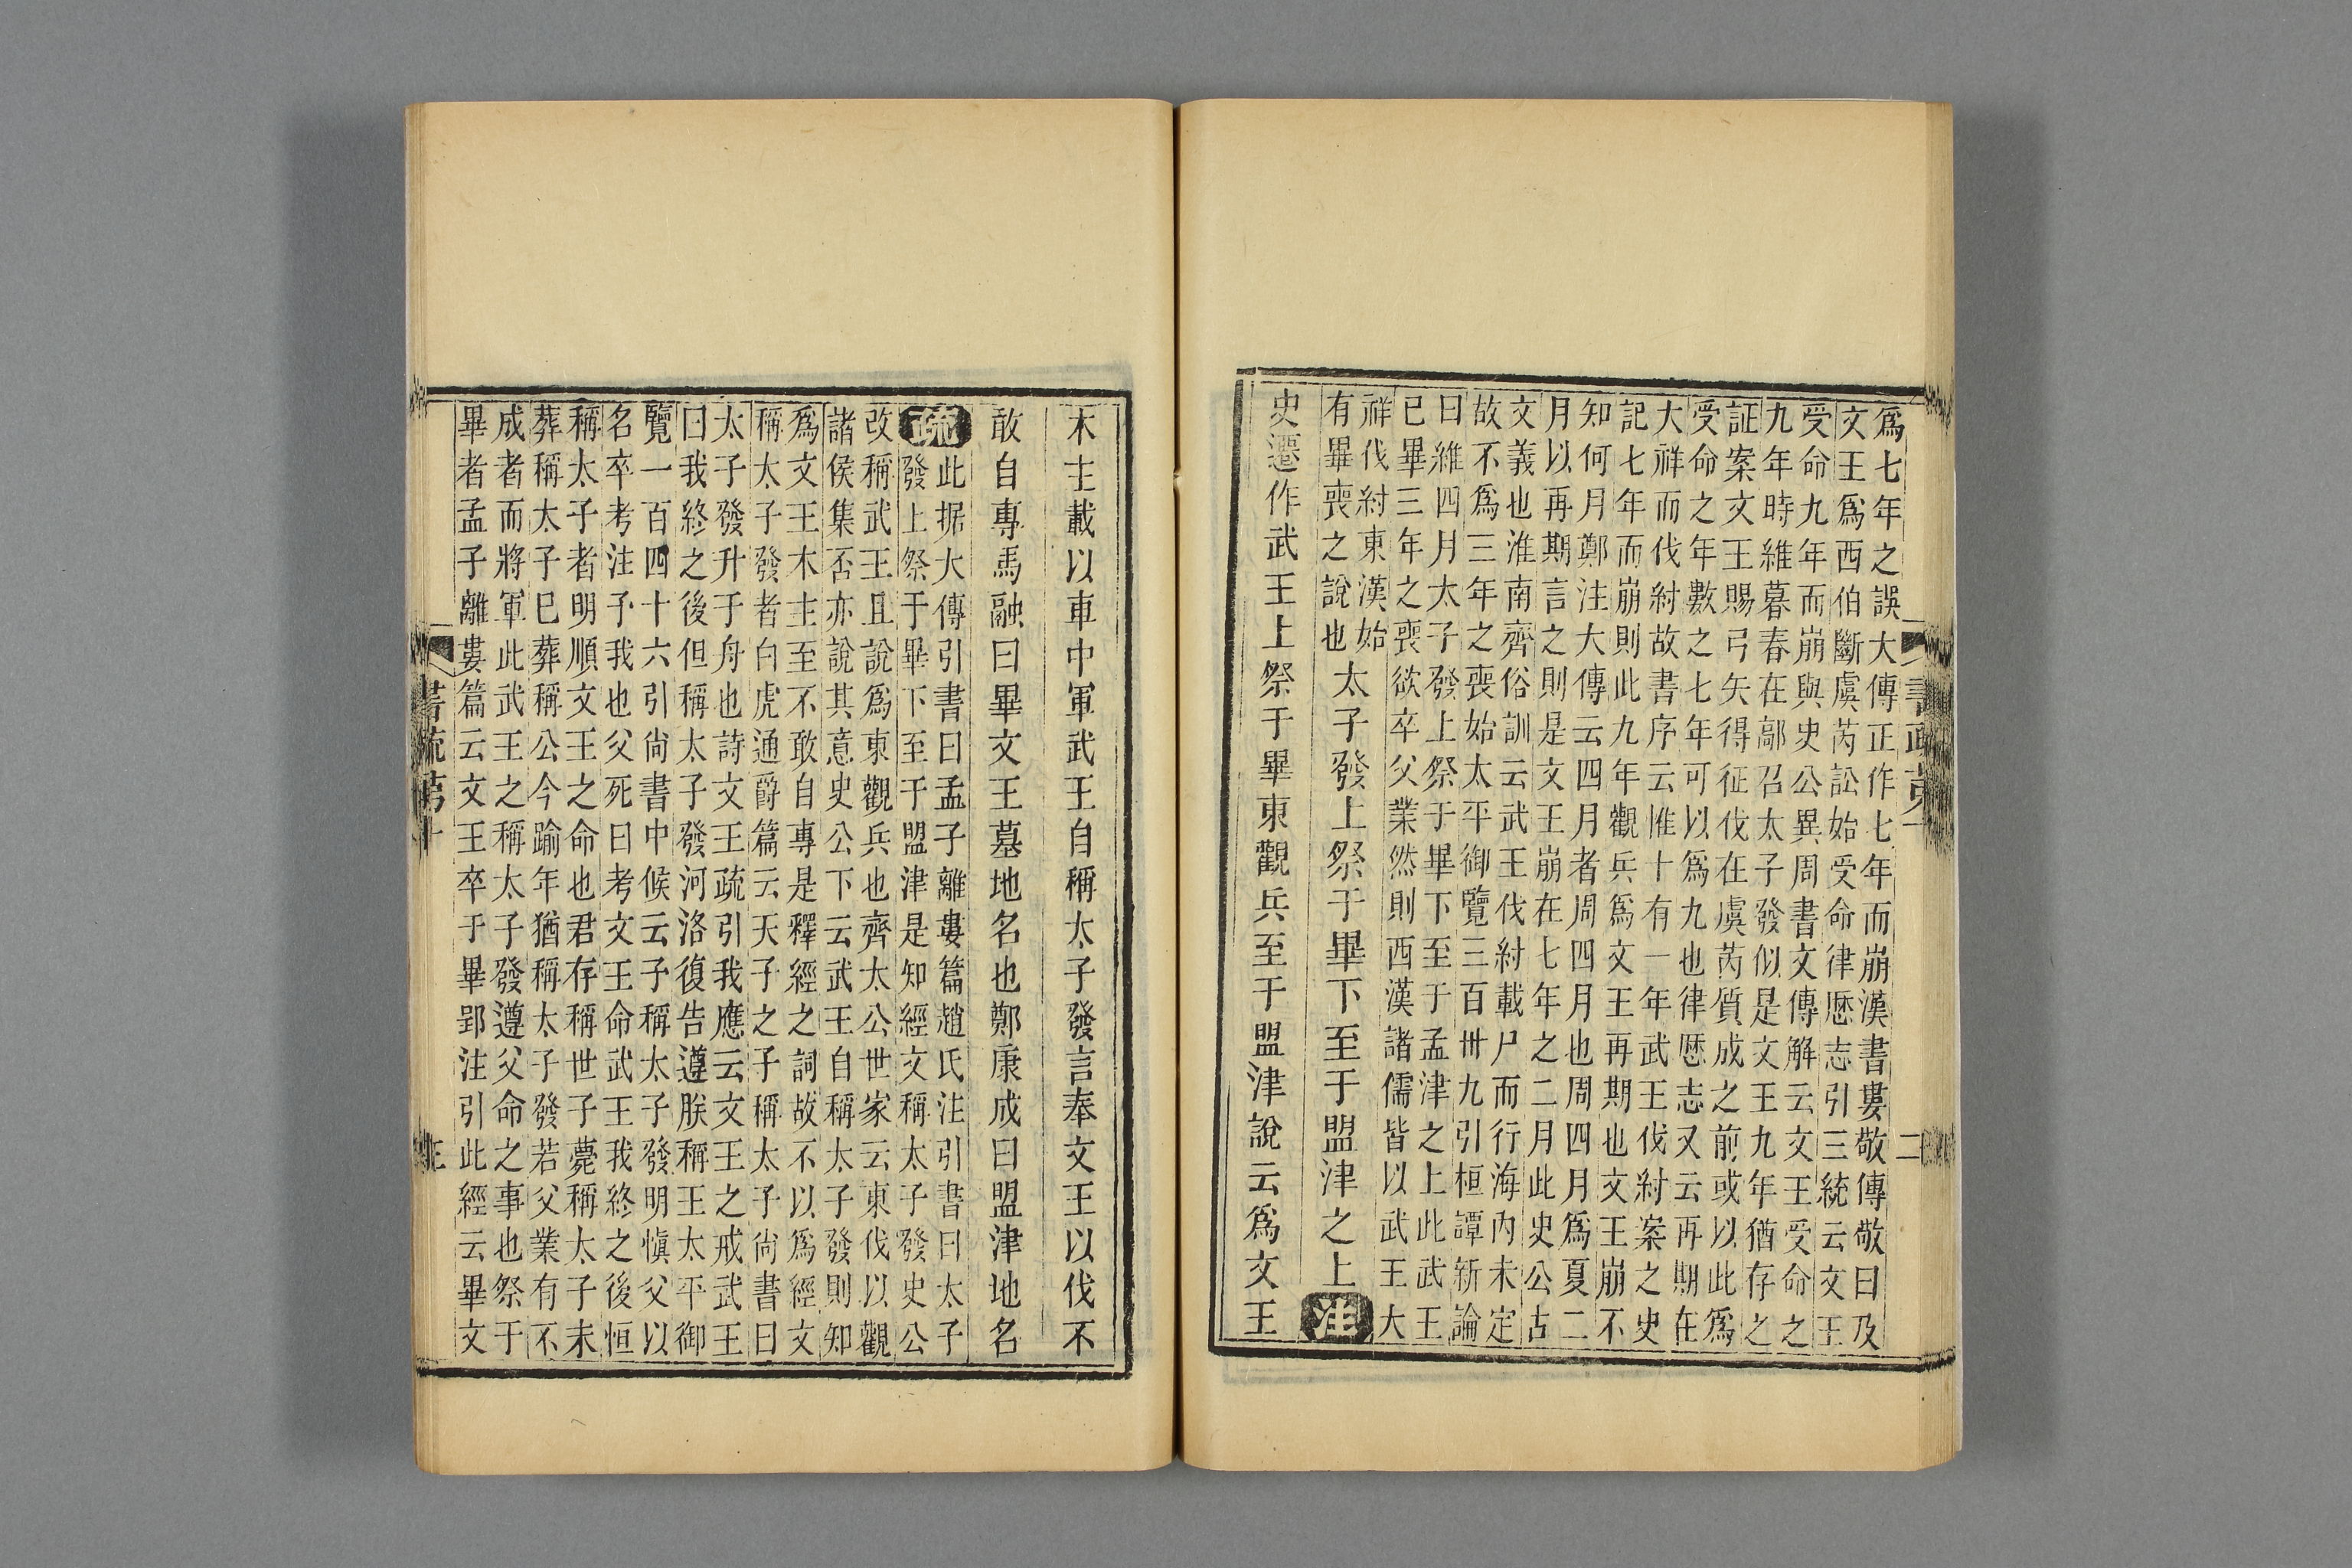 爲七年之誤大傳正作七年而崩漢書婁敬傳敬曰及
文王爲西伯斷虞芮訟始受命律厯志引三統云文王
受命九年而崩與史公異周書文傳解云文王受命之
九年時維暮春在鄗召太子發似是文王九年猶存之
証案文王賜弓矢得征伐在虞芮質成之前或以此爲
受命之年數之七年可以爲九也律厯志又云再期在
大祥而伐紂故書序云惟十有一年武王伐紂案之史
記七年而崩則此九年觀兵爲文王再期也文王崩不
知何月鄭注大傳云四月者周四月也周四月爲夏二
月以再期言之則是文王崩在七年之二月此史公古
文義也淮南齊俗訓云武王伐紂載尸而行海內未定
故不爲三年之喪始太平御覽三百卅九引桓譚新論
曰維四月太子發上祭于畢下至于孟津之上此武王
已畢三年之喪欲卒父業然則西漢諸儒皆以武王大
祥伐紂東漢始
有畢喪之說也
太子發上祭于畢下至于盟津之上注
史遷作武王上祭于畢東觀兵至于盟津說云爲文王
書疏第
二
木主載以車中軍武王自稱太子發言奉文王以伐不
敢自專馬融曰畢文王墓地名也鄭康成曰盟津地名
疏
此据大傳引書曰孟子離婁篇趙氏注引書曰太子
發上祭于畢下至于盟津是知經文稱太子發史公
改稱武王且說爲東觀兵也齊太公世家云東伐以觀
諸侯集否亦說其意史公下云武王自稱太子發則知
爲文王木主至不敢自專是釋經之詞故不以爲經文
稱太子發者白虎通爵篇云天子之子稱太子尙書曰
太子發升于舟也詩文王疏引我應云文王之戒武王
曰我終之後但稱太子發河洛復告遵朕稱王太平御
覽一百四十六引尙書中候云子稱太子發明愼父以
名卒考注予我也父死曰考文王命武王我終之後恒
稱太子者明順文王之命也君存稱世子薨稱太子未
葬稱太子巳葬稱公今踰年猶稱太子發若父業有不
成者而將軍此武王之稱太子發遵父命之事也祭于
畢者孟子離婁篇云文王卒于畢郢注引此經云畢文
書疏第十
三